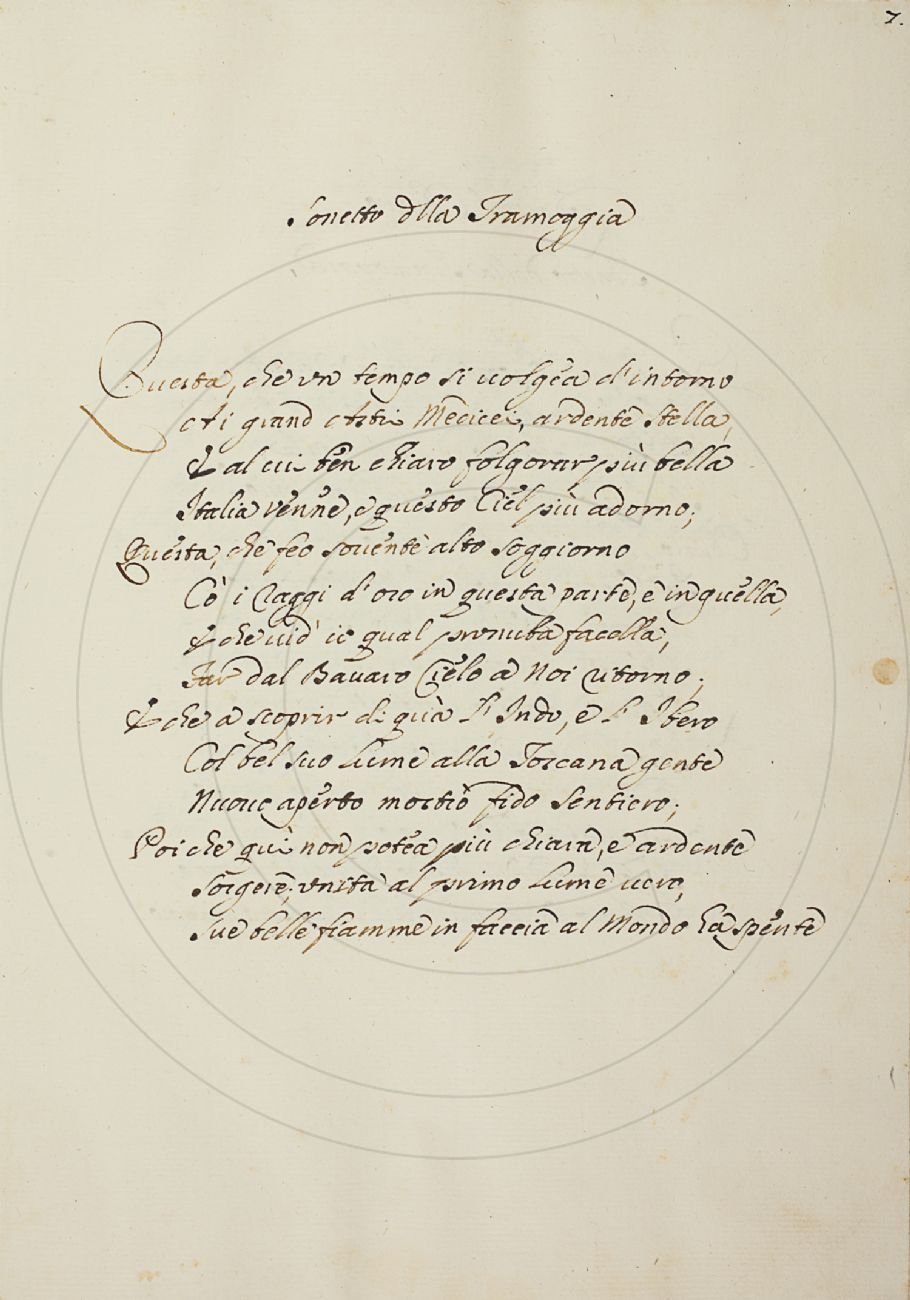 7.
Sonetto dlla Tramoggia
Questa, che un tempo si volgea d'intorno
Ai grand Astri Medicei, ardente Stella,
E al cui ben chiaro folgorar più bella
Italia venne, e questo Ciel più adorno;
Questa, che feo sovente alto soggiorno
Cò i Raggi d'oro in questa parte, e in quella,
E che vid' io qual pronuba facella,
Far dal Bavaro Cielo a Noi ritorno;
E che a scoprir di quà l'Indo, e l'Ibero
Col bel suo Lume alla Toscana gente
Nuovo aperto mostrò fido Sentiero;
Poi che quì non potea più chiara, e ardente
Sorgere, unita al primo Lume vero,
Sue belle fiamme in faccia al Mondo ha spente